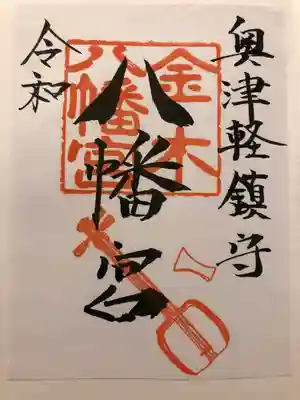 奥津軽鎮守
八幡宮
令和
金木
八幡宮